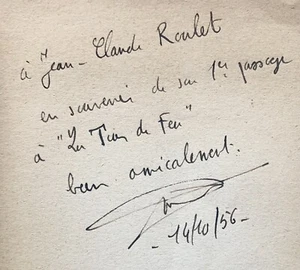 à Jean-Claude Roulet
en souvenir de son 1er passage
à "La Tour de Feu"
bien amicalement.
- 14/10/56 -